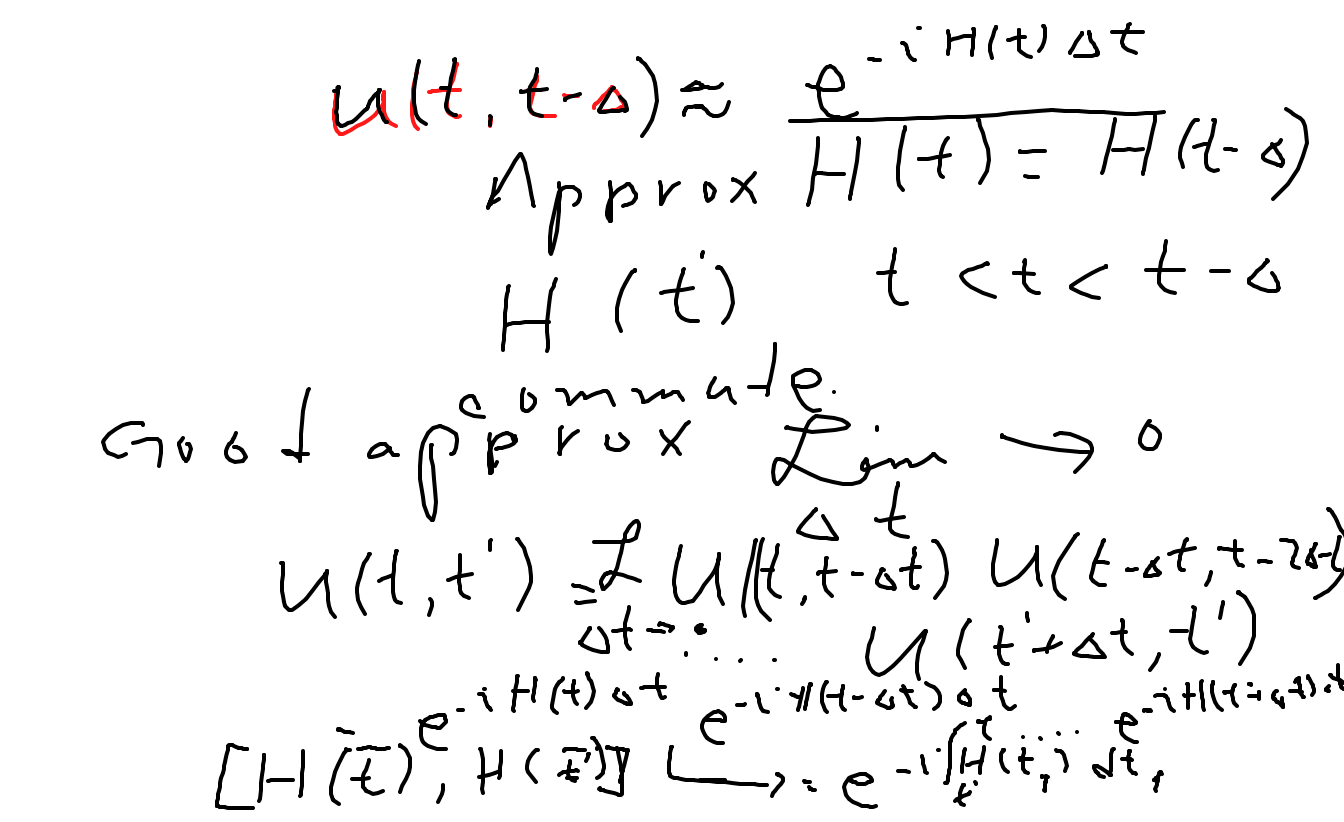 u(t, t-Δ) ≈ e^{-iH(t)Δt}
Approx H(t) = H(t-Δ)
H(t') t < t < t-Δ
commute.
Good approx Lim → 0
Δt
U(t,t') = L U(t,t-Δt) U(t-Δt,t-2Δt)
Δt→. .... U(t'+Δt,t')
e^{-iH(t)Δt} e^{-iH(t-Δt)Δt} .... e^{-iH(t'+Δt)Δt}
[H(t̄), H(t̄')] → = e^{-i∫H(t₁)dt₁}